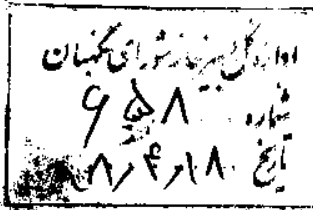 اداره کل دبیرخانه شورای نگهبان
شماره ۶۵۸
تاریخ